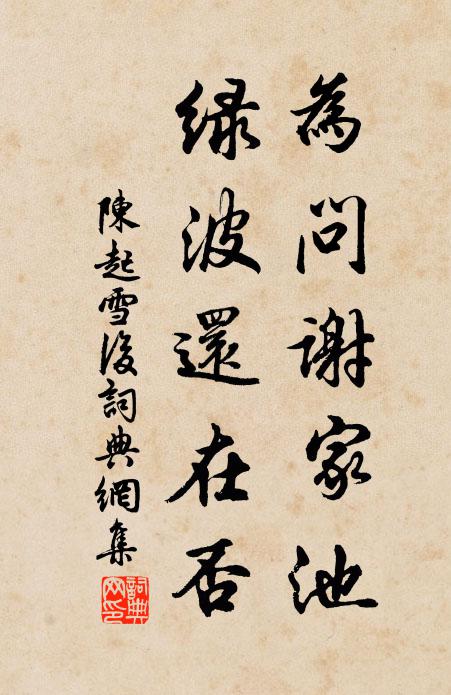 為問謝家池
綠波還在否
陳起雪後詞典網集
詞典網印